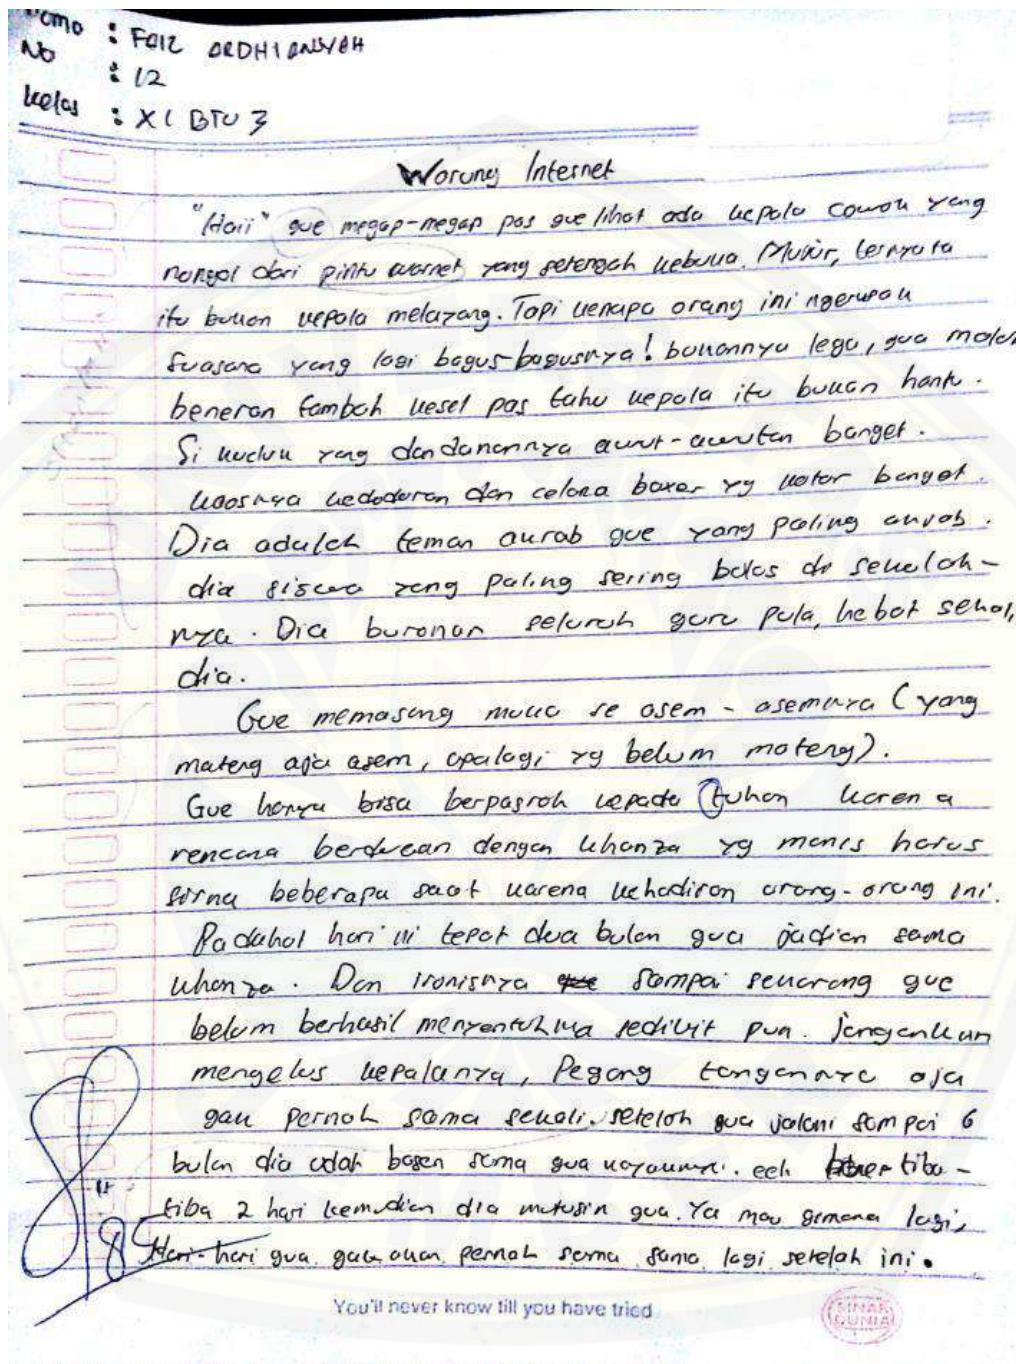 Nama : FAIZ ARDHIANSYAH
No : 12
kelas : XI BTU 3
Warung Internet
"Haii" gue megap-megap pas gue lihat ada kepala cowok yang
nongol dari pintu warnet yang setengah kebuka. Mukir, ternyata
itu bukan kepala melayang. Tapi kenapa orang ini ngerusak
suasana yang lagi bagus-bagusnya! bukannya lega, gua malah
beneran tambah kesel pas tahu kepala itu bukan hantu.
Si kucluk yang dandanannya awut-awutan banget.
kaosnya kedodoran dan celana boxer yg kotor banget.
Dia adalah teman akrab gue yang paling akrab.
dia siswa yang paling sering bolos di sekolah-
nya. Dia buronan seluruh guru pula, hebat sekali
dia.
Gue memasang muka se asem - asemnya (yang
mateng aja asem, apalagi yg belum mateng).
Gue hanya bisa berpasrah kepada tuhan karena
rencana berduean dengan khanza yg manis harus
sirna beberapa saat karena kehadiran orang-orang ini.
Padahal hari ini tepat dua bulan gua jadian sama
khanza. Dan ironisnya sampai sekarang gue
belum berhasil menyentuhnya sedikit pun. jangankan
mengelus kepalanya, Pegang tangannya aja
gak pernah sama sekali. setelah gua jalani sampai 6
bulan dia udah bosen sama gua kayaknya. eeh tiba-
tiba 2 hari kemudian dia mutusin gua. Ya mau gimana lagi,
Hari-hari gua gak akan pernah sama sama lagi setelah ini.
85
You'll never know till you have tried
SINAR
DUNIA